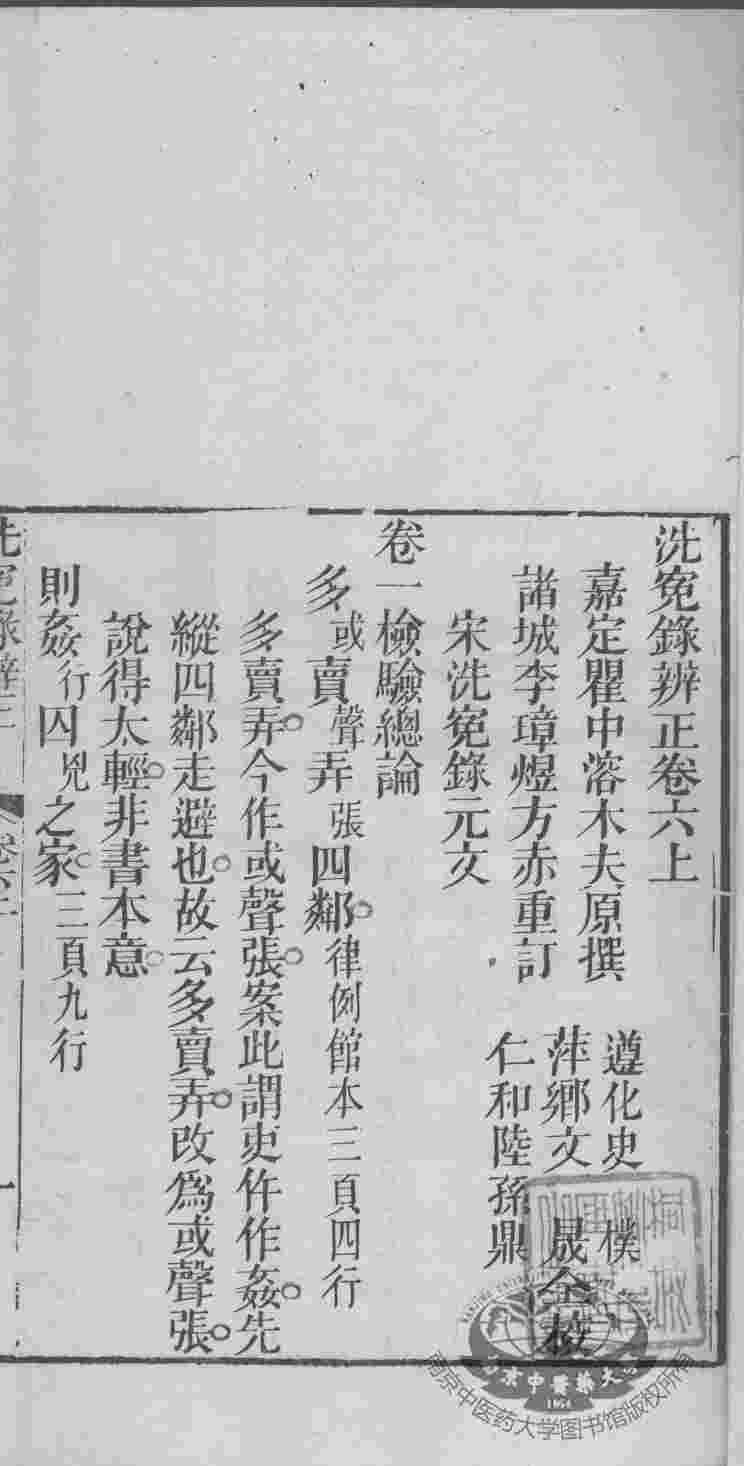 洗冤錄辨正卷六上
嘉定瞿中溶木夫原撰
諸城李璋煜方赤重訂
遵化史樸
萍鄉文晟仝校
仁和陸孫鼎
宋洗冤錄元文
卷一檢驗總論
多或賣聲弄張四鄰律例館本三頁四行
多賣弄今作或聲張案此謂吏仵作姦先
縱四鄰走避也故云多賣弄改爲或聲張
說得太輕非書本意
則姦行囚兇之家三頁九行
洗冤錄辨正
卷六上
一
南京中医药大学图书馆版权所有